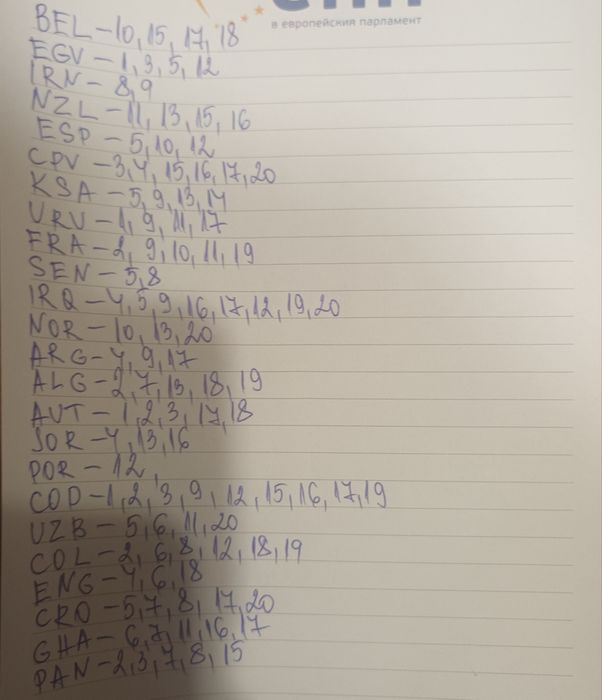 в европейския парламент
BEL - 10, 15, 17, 18
EGV - 1, 3, 5, 12
IRN - 8, 9
NZL - 11, 13, 15, 16
ESP - 5, 10, 12
CPV - 3, 4, 15, 16, 17, 20
KSA - 5, 9, 13, 14
URU - 1, 9, 11, 17
FRA - 2, 9, 10, 11, 19
SEN - 5, 8
IRQ - 4, 5, 9, 16, 17, 12, 19, 20
NOR - 10, 13, 20
ARG - 4, 9, 17
ALG - 2, 7, 13, 18, 19
AUT - 1, 2, 3, 17, 18
JOR - 4, 13, 16
POR - 12,
COD - 1, 2, 3, 9, 12, 15, 16, 17, 19
UZB - 5, 6, 11, 20
COL - 2, 6, 8, 12, 18, 19
ENG - 4, 6, 18
CRO - 5, 7, 8, 17, 20
GHA - 6, 7, 11, 16, 17
PAN - 2, 3, 7, 8, 15